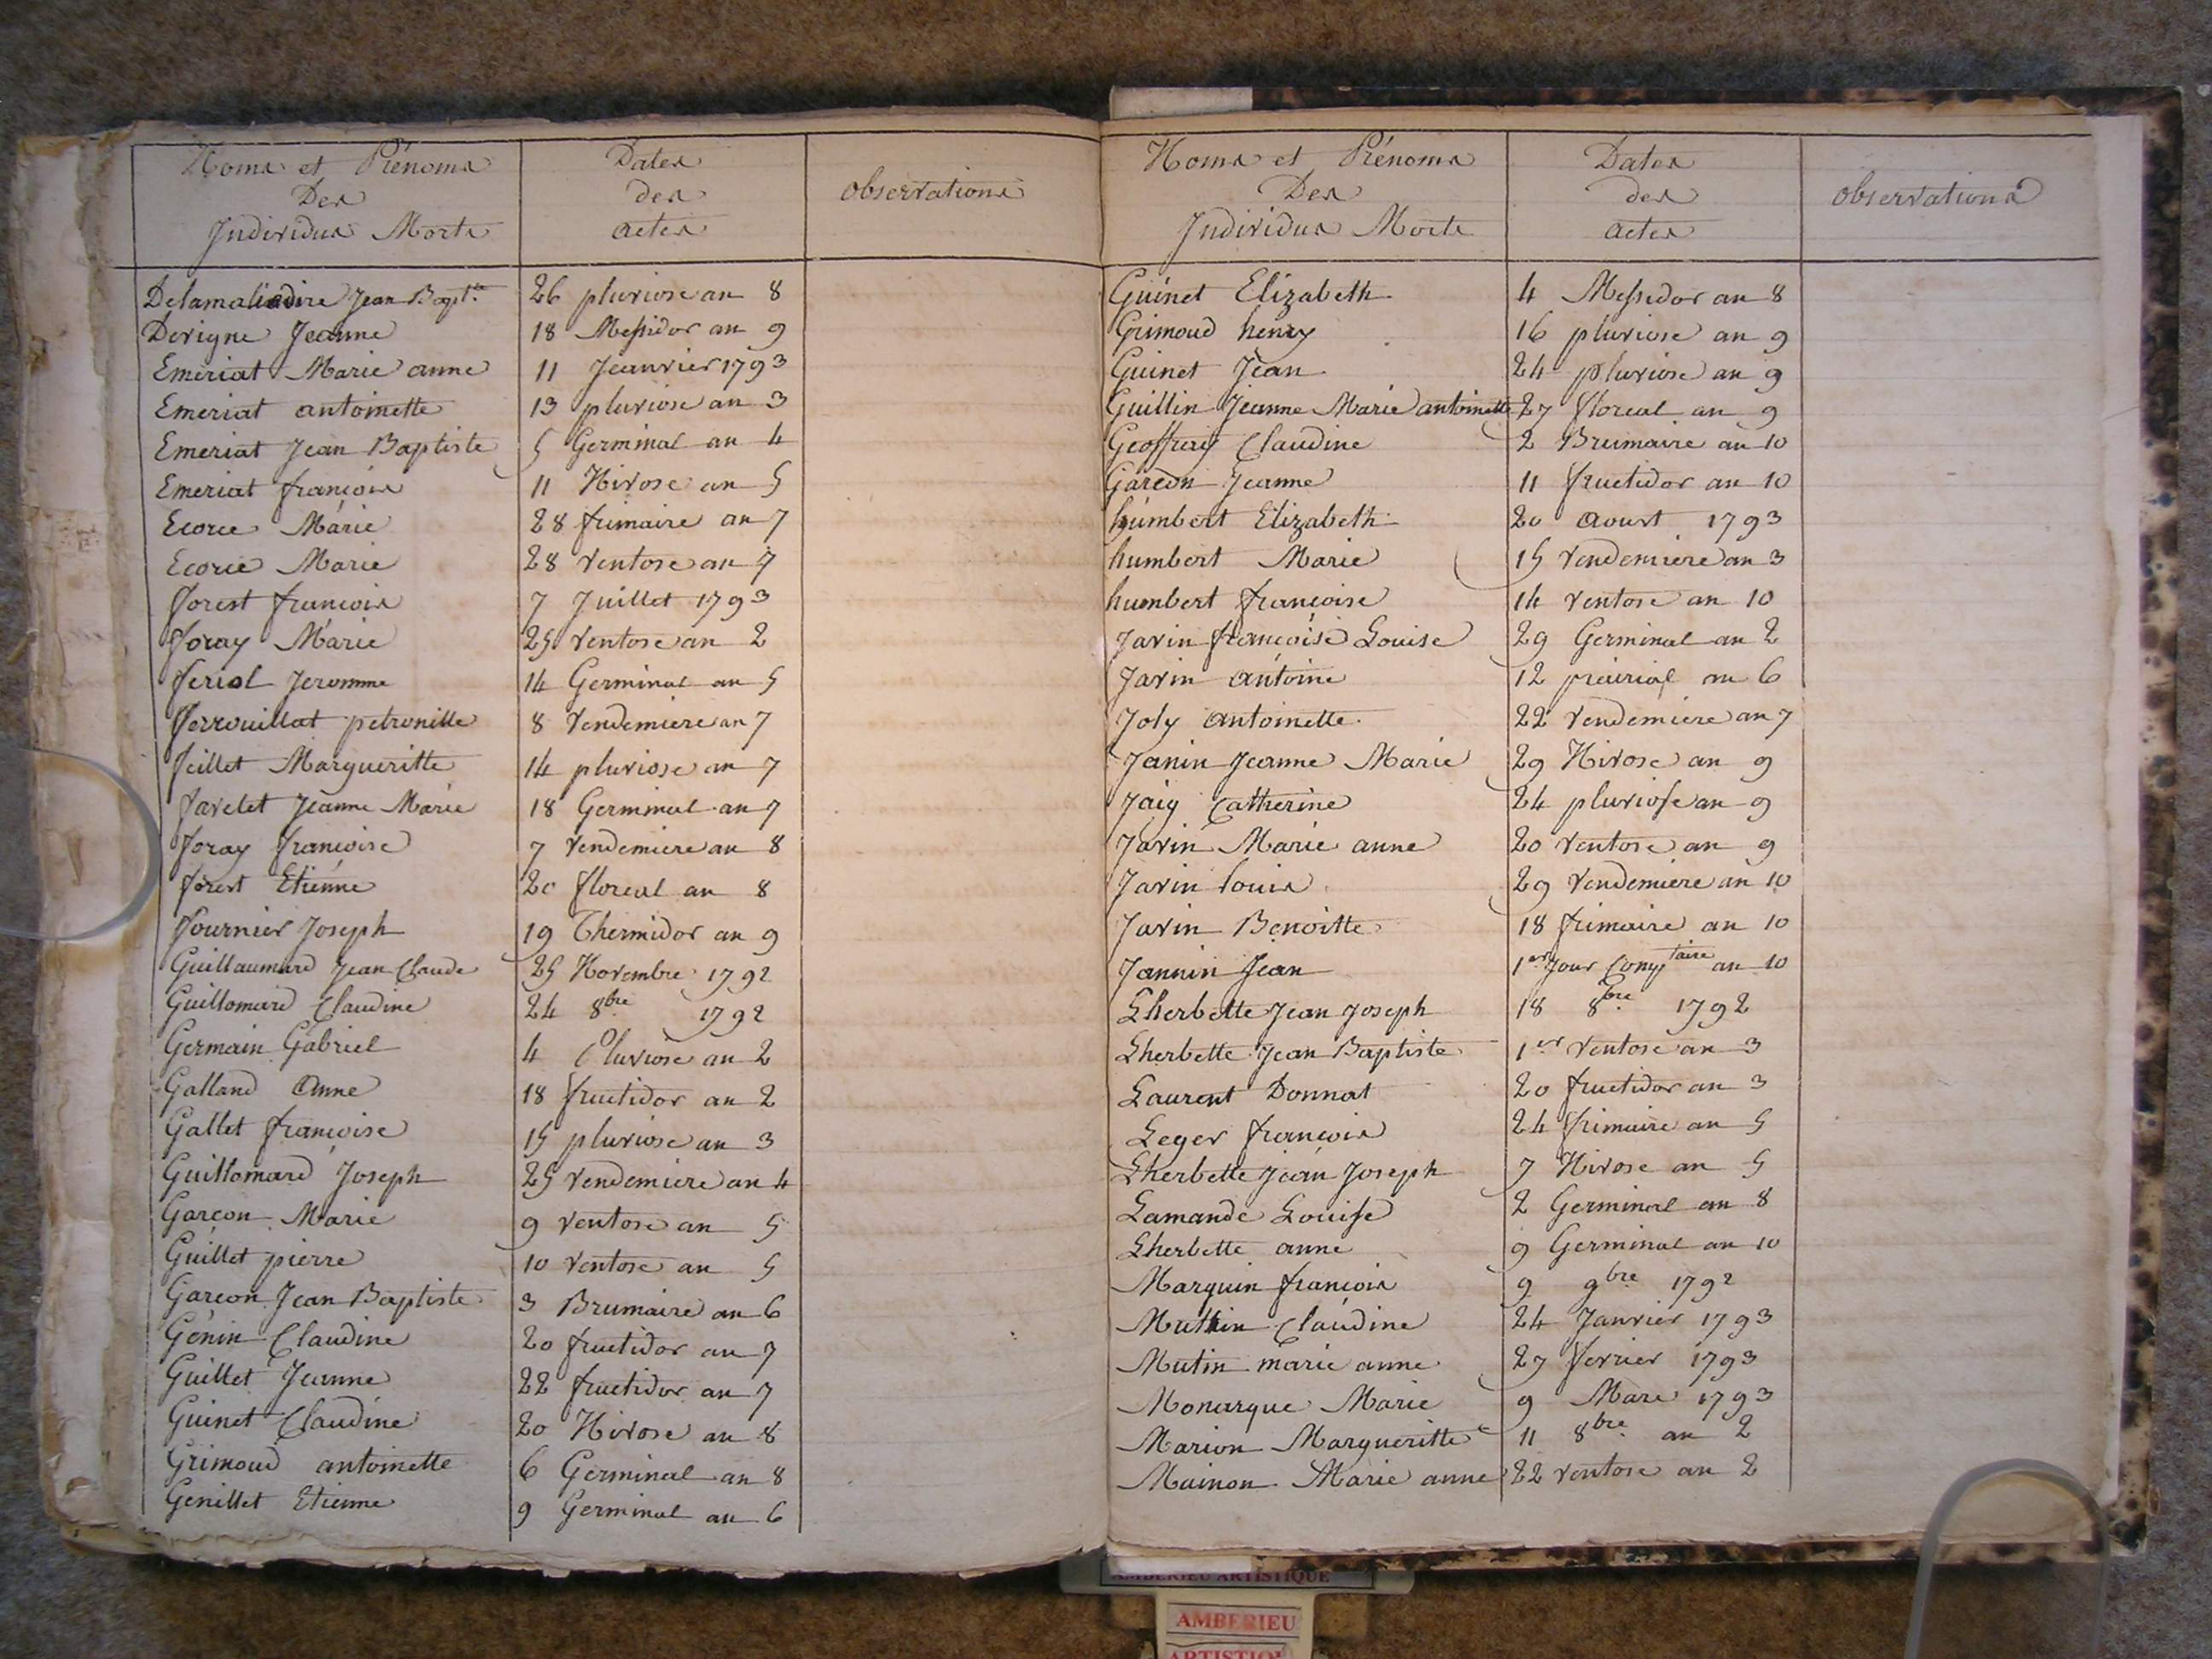 Noms et Prénoms Dates
Des des observations
Individus Morts actes
Delamaliadire Jean Bapt.te 26 pluviose an 8
Devigne Jeanne 18 Messidor an 9
Emeriat Marie anne 11 Jeanvier 1793
Emeriat antoinette 13 pluviose an 3
Emeriat Jean Baptiste 5 Germinal an 4
Emeriat françois 11 Nivose an 5
Ecorce Marie 28 frimaire an 7
Ecorie Marie 28 Ventose an 7
forest françois 7 Juillet 1793
foray Marie 25 Ventose an 2
feriol Jeromme 14 Germinal an 5
ferrouillat petronille 8 Vendemiere an 7
feillet Margueritte 14 pluviose an 7
favelet Jeanne Marie 18 Germinal an 7
foray françoise 7 Vendemiere an 8
forest Etienne 20 floreal an 8
fournier Joseph 19 Thermidor an 9
Guillaumard Jean Claude 25 Novembre 1792
Guillomard Claudine 24 8bre 1792
Germain Gabriel 4 Pluviose an 2
Galland Anne 18 fructidor an 2
Gallet françoise 15 pluviose an 3
Guillomard Joseph 25 Vendemiere an 4
Garçon Marie 9 Ventose an 5
Guillet pierre 10 Ventose an 5
Garcon Jean Baptiste 3 Brumaire an 6
Génin Claudine 20 fructidor an 7
Guillet Jeanne 22 fructidor an 7
Guinet Claudine 20 Nivose an 8
Grimoud antoinette 6 Germinal an 8
Genillet Etienne 9 Germinal an 6
Noms et Prénoms Dates
Des des observations
Individus Morts actes
Guinet Elizabeth 4 Messidor an 8
Grimoud henry 16 pluviose an 9
Guinet Jean 24 pluviose an 9
Guillin Jeanne Marie antoinette 27 floreal an 9
Geoffray Claudine 2 Brumaire an 10
Garcon Jeanne 11 fructidor an 10
humbert Elizabeth 20 Aoust 1793
humbert Marie 15 Vendemiere an 3
humbert françoise 14 Ventose an 10
Javin françoise Louise 29 Germinal an 2
Javin antoine 12 preirial an 6
Joly Antoinette 22 Vendemiere an 7
Janin Jeanne Marie 29 Nivose an 9
Jaiy Catherine 24 pluviose an 9
Javin Marie anne 20 Ventose an 9
Javin louis 29 Vendemiere an 10
Javin Benoitte 18 frimaire an 10
Jannin Jean 1er Jour Comptaire an 10
Lherbette Jean Joseph 18 8bre 1792
Lherbette Jean Baptiste 1er Ventose an 3
Laurent Donnat 20 fructidor an 3
Leger françois 24 frimaire an 5
Lherbette Jean Joseph 7 Nivose an 5
Lamande Louise 2 Germinal an 8
Lherbette anne 9 Germinal an 10
Marquin françois 9 9bre 1792
Muthin Claudine 24 Janvier 1793
Mutin marie anne 27 fevrier 1793
Monarque Marie 9 Mars 1793
Marion Margueritte 11 8bre an 2
Mainon Marie anne 22 Ventose an 2
AMBERIEU ARTISTIQUE
AMBERIEU